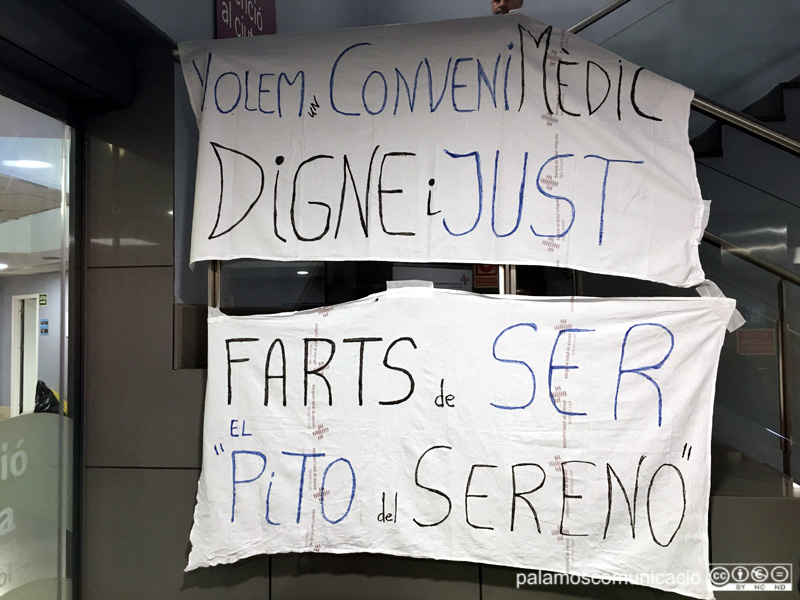 enció
al ciut
VOLEM UN CONVENI MÈDIC
DIGNE i JUST
FARTS de SER
EL
"PiTO del SERENO"
ió
a
palamoscomunicacio
cc BY NC ND